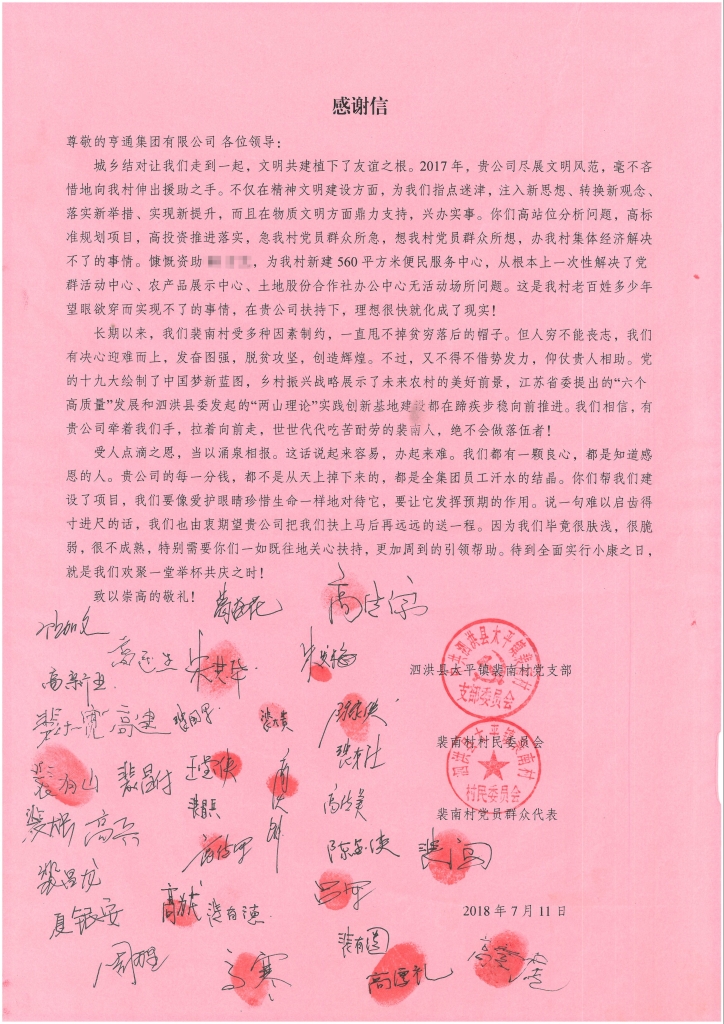 感谢信
尊敬的亨通集团有限公司 各位领导：
城乡结对让我们走到一起，文明共建植下了友谊之根。2017 年，贵公司尽展文明风范，毫不吝
惜地向我村伸出援助之手。不仅在精神文明建设方面，为我们指点迷津，注入新思想、转换新观念、
落实新举措、实现新提升，而且在物质文明方面鼎力支持，兴办实事。你们高站位分析问题，高标
准规划项目，高投资推进落实，急我村党员群众所急，想我村党员群众所想，办我村集体经济解决
不了的事情。慷慨资助 ，为我村新建 560 平方米便民服务中心，从根本上一次性解决了党
群活动中心、农产品展示中心、土地股份合作社办公中心无活动场所问题。这是我村老百姓多少年
望眼欲穿而实现不了的事情，在贵公司扶持下，理想很快就化成了现实！
长期以来，我们裴南村受多种因素制约，一直甩不掉贫穷落后的帽子。但人穷不能丧志，我们
有决心迎难而上，发奋图强，脱贫攻坚，创造辉煌。不过，又不得不借势发力，仰仗贵人相助。党
的十九大绘制了中国梦新蓝图，乡村振兴战略展示了未来农村的美好前景，江苏省委提出的“六个
高质量”发展和泗洪县委发起的“两山理论”实践创新基地建设都在蹄疾步稳向前推进。我们相信，有
贵公司牵着我们手，拉着向前走，世世代代吃苦耐劳的裴南人，绝不会做落伍者！
受人点滴之恩，当以涌泉相报。这话说起来容易，办起来难。我们都有一颗良心，都是知道感
恩的人。贵公司的每一分钱，都不是从天上掉下来的，都是全集团员工汗水的结晶。你们帮我们建
设了项目，我们要像爱护眼睛珍惜生命一样地对待它，要让它发挥预期的作用。说一句难以启齿得
寸进尺的话，我们也由衷期望贵公司把我们扶上马后再远远的送一程。因为我们毕竟很肤浅，很脆
弱，很不成熟，特别需要你们一如既往地关心扶持，更加周到的引领帮助。待到全面实行小康之日，
就是我们欢聚一堂举杯共庆之时！
致以崇高的敬礼！
泗洪县太平镇裴南村党支部
支部委员会
高建
裴南村村民委员会
裴昌付
村民委员会
裴南村党员群众代表
高兵
裴昌龙
夏银安
2018 年 7 月 11 日
高寒
高厚礼